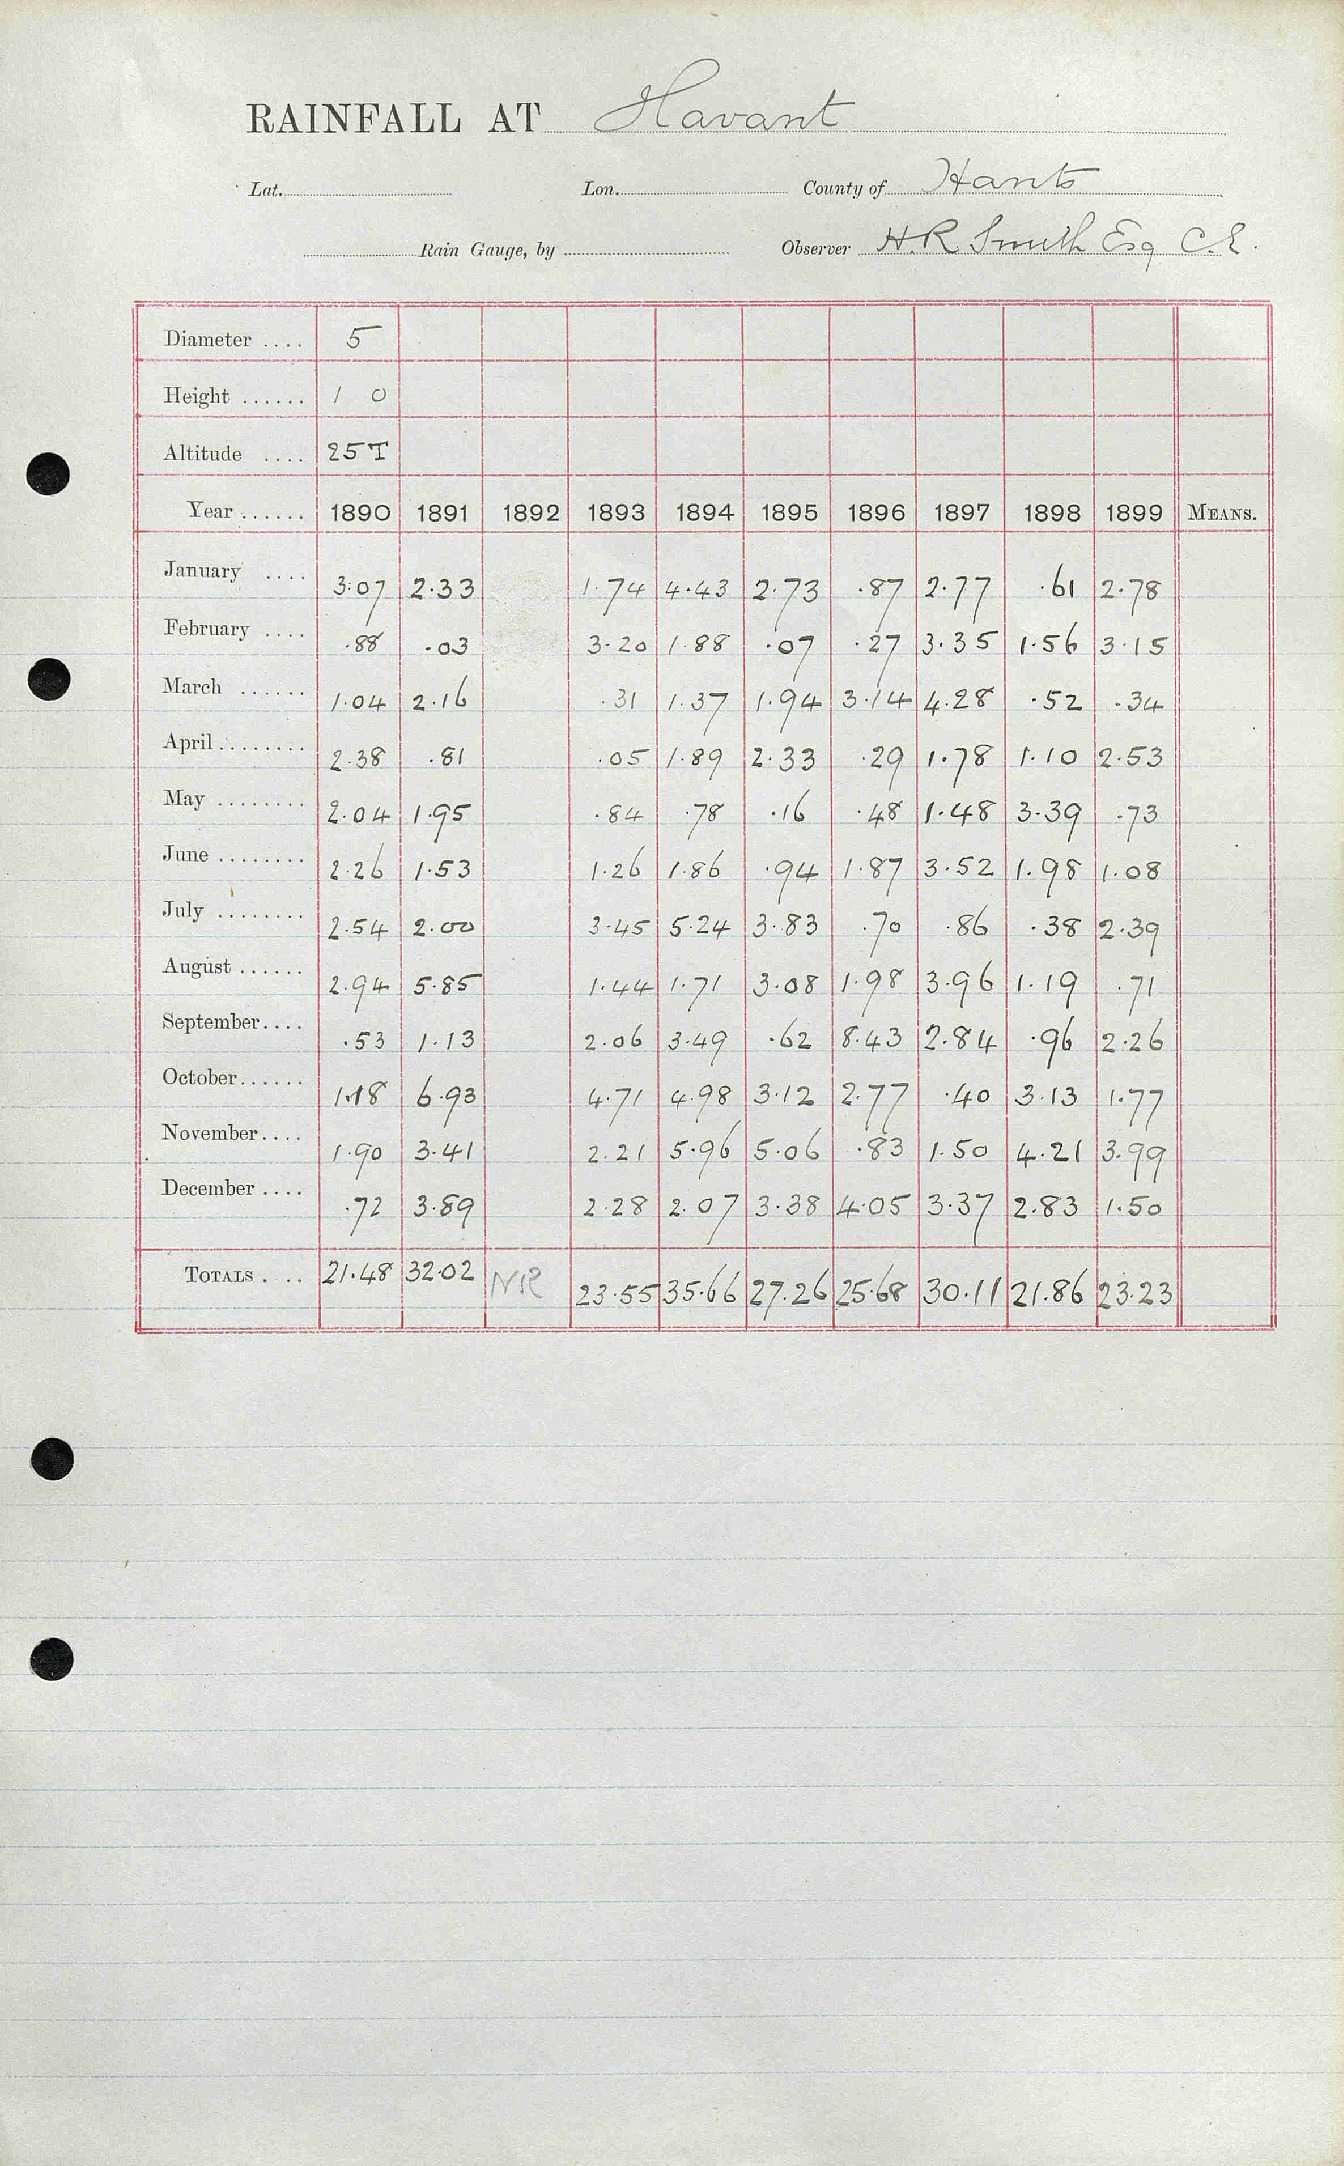 RAINFALL AT Havant
Lat. Lon. County of Hants
Rain Gauge, by Observer H.R. Smith Esq C.E.
Diameter .... 5
Height ...... 1 0
Altitude .... 25T
Year ...... 1890 1891 1892 1893 1894 1895 1896 1897 1898 1899 MEANS.
January .... 3.07 2.33 1.74 4.43 2.73 .87 2.77 .61 2.78
February .... .88 .03 3.20 1.88 .07 .27 3.35 1.56 3.15
March ...... 1.04 2.16 .31 1.37 1.94 3.14 4.28 .52 .34
April ........ 2.38 .81 .05 1.89 2.33 .29 1.78 1.10 2.53
May ........ 2.04 1.95 .84 .78 .16 .48 1.48 3.39 .73
June ........ 2.26 1.53 1.26 1.86 .94 1.87 3.52 1.98 1.08
July ........ 2.54 2.00 3.45 5.24 3.83 .70 .86 .38 2.39
August ...... 2.94 5.85 1.44 1.71 3.08 1.98 3.96 1.19 .71
September.... .53 1.13 2.06 3.49 .62 8.43 2.84 .96 2.26
October...... 1.18 6.93 4.71 4.98 3.12 2.77 .40 3.13 1.77
November.... 1.90 3.41 2.21 5.96 5.06 .83 1.50 4.21 3.99
December .... .72 3.89 2.28 2.07 3.38 4.05 3.37 2.83 1.50
TOTALS .... 21.48 32.02 NR 23.55 35.66 27.26 25.68 30.11 21.86 23.23